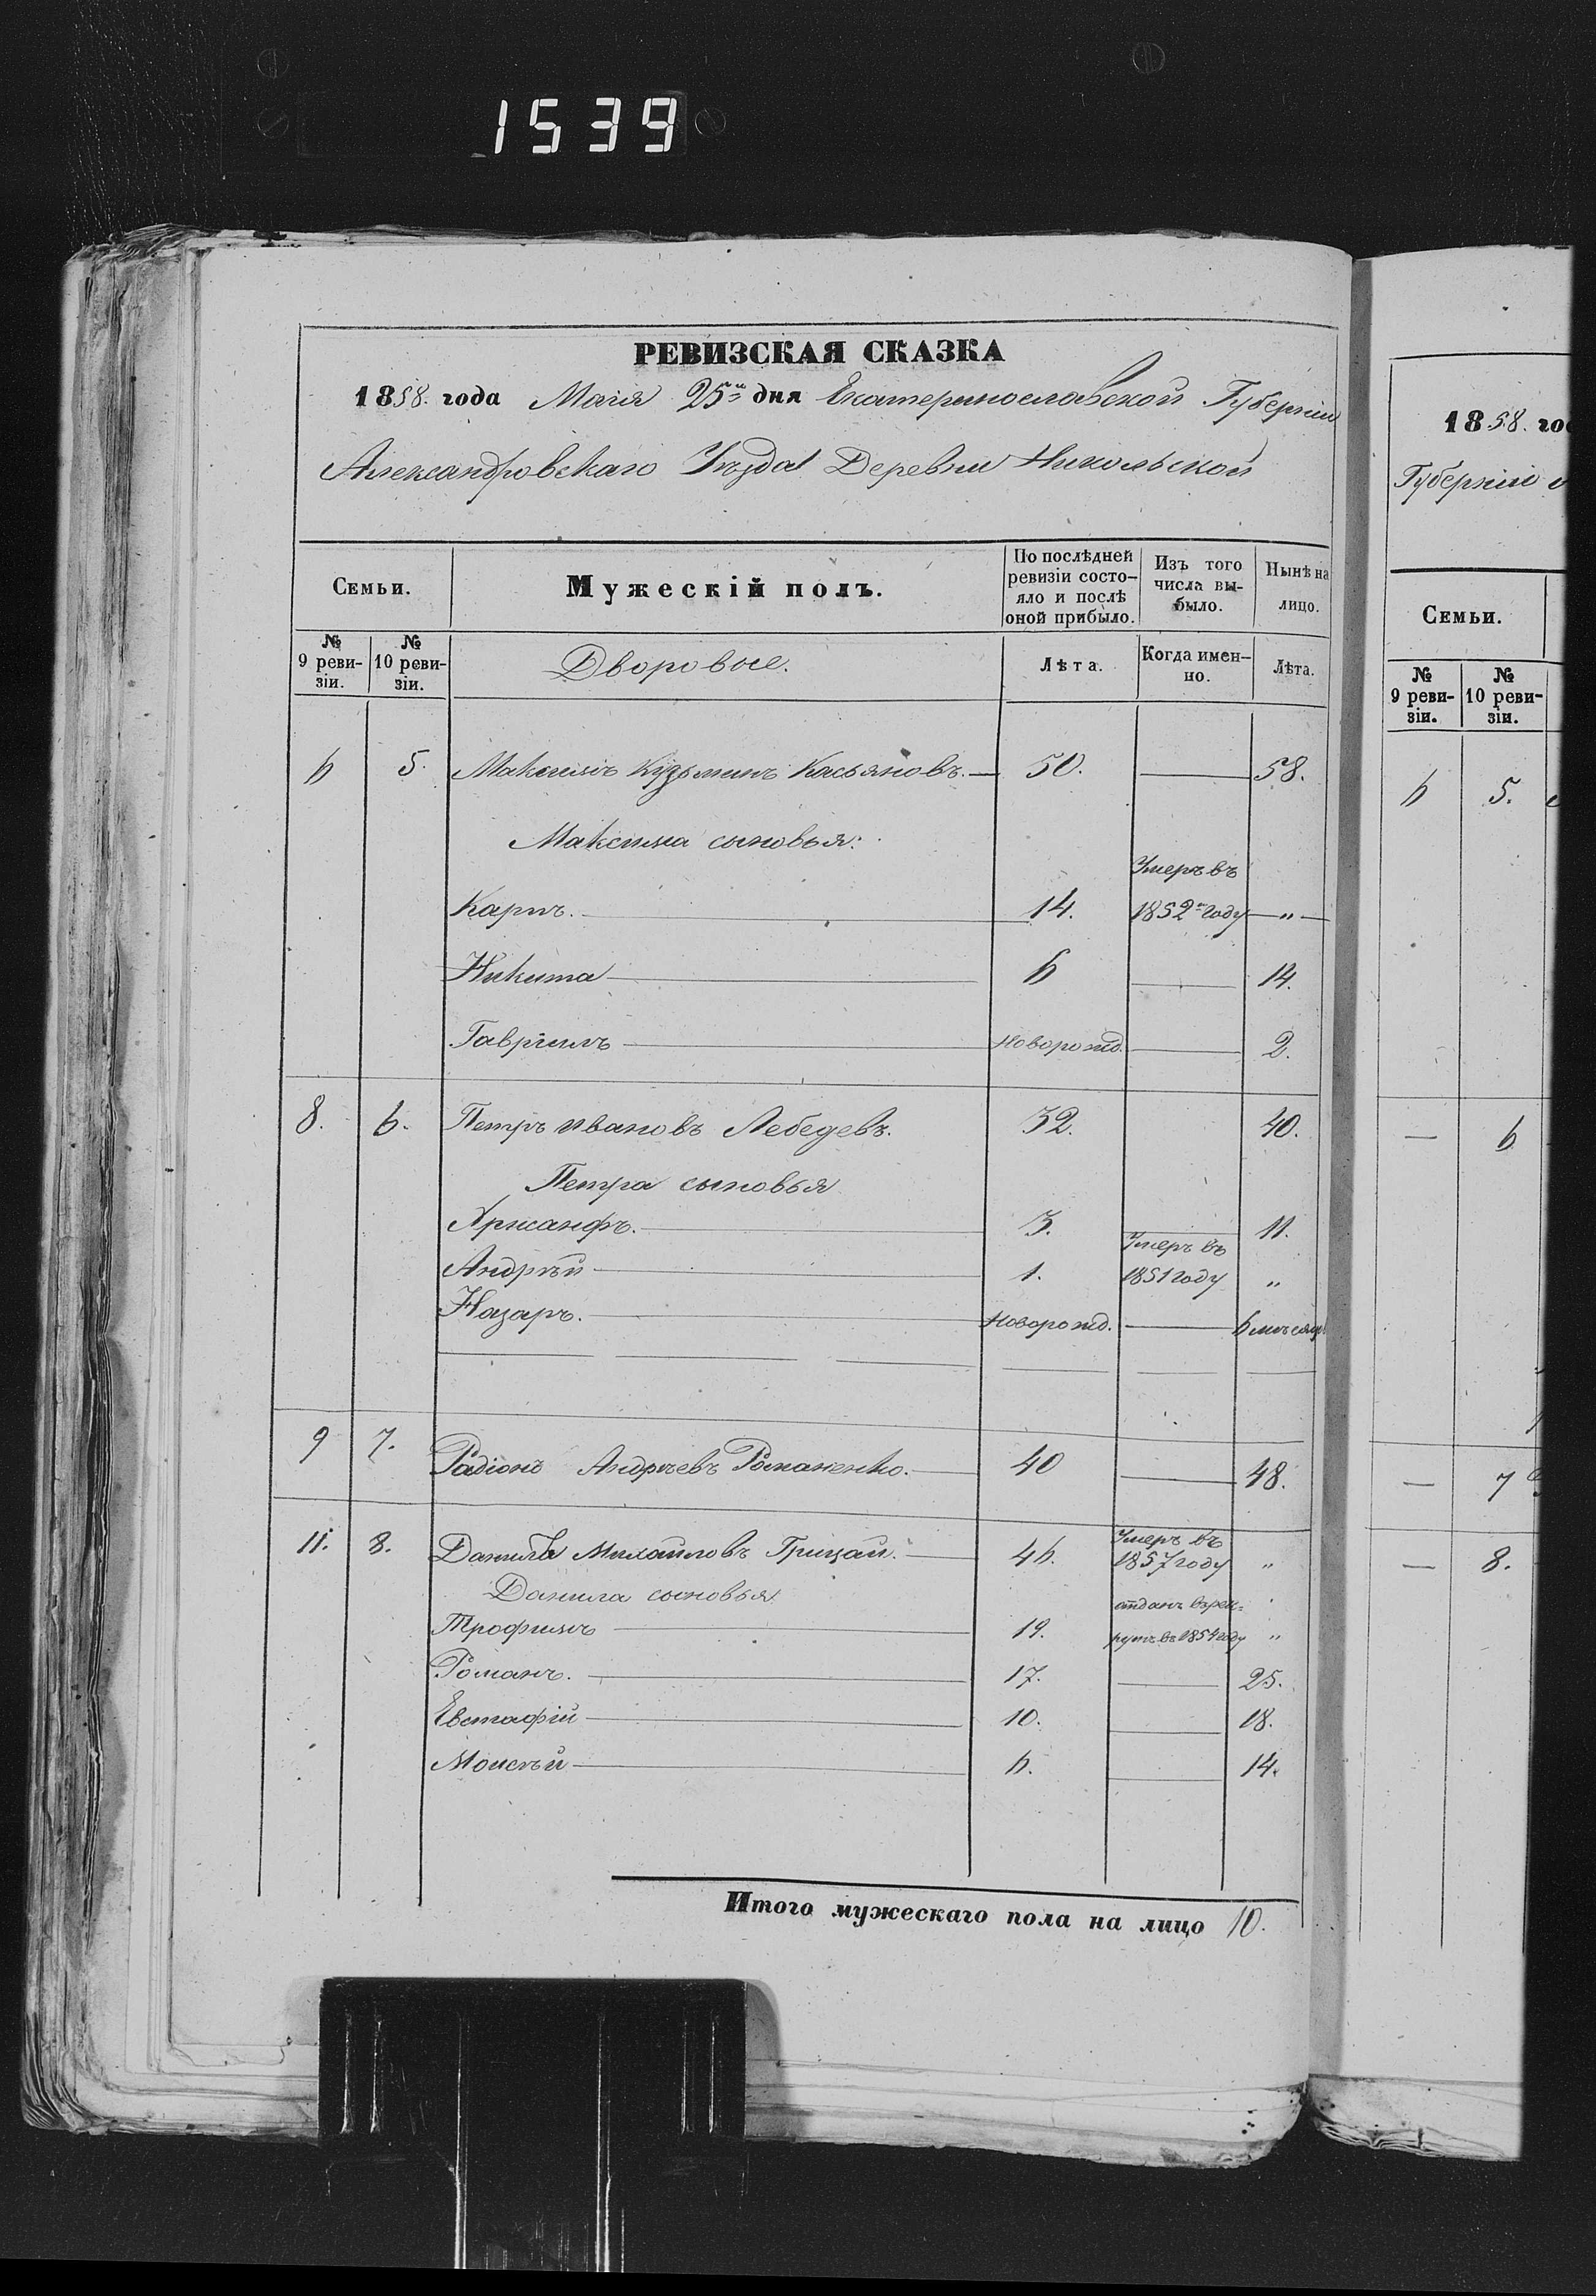 1539
РЕВИЗСКАЯ СКАЗКА
1858. года Маія 25го дня Екатеринославской Губерніи
Александровскаго Уѣзда Деревни Никольской
Семьи.
Мужескій полъ.
По послѣдней ревизіи состояло и послѣ оной прибыло.
Изъ того числа выбыло.
Нынѣ на лицо.
№ 9 ревизіи.
№ 10 ревизіи.
Дворовые.
Лѣта.
Когда именно.
Лѣта.
6 5. Максимъ Кузьминъ Касьяновъ. 50. 58.
Максима сыновья:
Карпъ. 14. Умеръ въ 1852м году "
Никита 6 14.
Гавріилъ Новорожд. 2.
8. 6. Петръ Ивановъ Лебедевъ. 32. 40.
Петра сыновья
3. 11.
Андрѣй 1. Умеръ въ 1851 году "
Назаръ. Новорожд. 6 мѣсяц.
9 7. Радіонъ Андрѣевъ Романенко. 40 48.
11. 8. Данила Михайловъ Грицай. 46. Умеръ въ 1857 году "
Данила сыновья
Трофимъ 19. отданъ въ рекруты въ 1854 году "
Романъ. 17. 25.
Евстафій 10. 18.
Моисѣй 6. 14.
Итого мужескаго пола на лицо 10.
1858. го
Губерніи
Семьи.
№ 9 ревизіи.
№ 10 ревизіи.
6 5.
— 6
— 7
— 8.